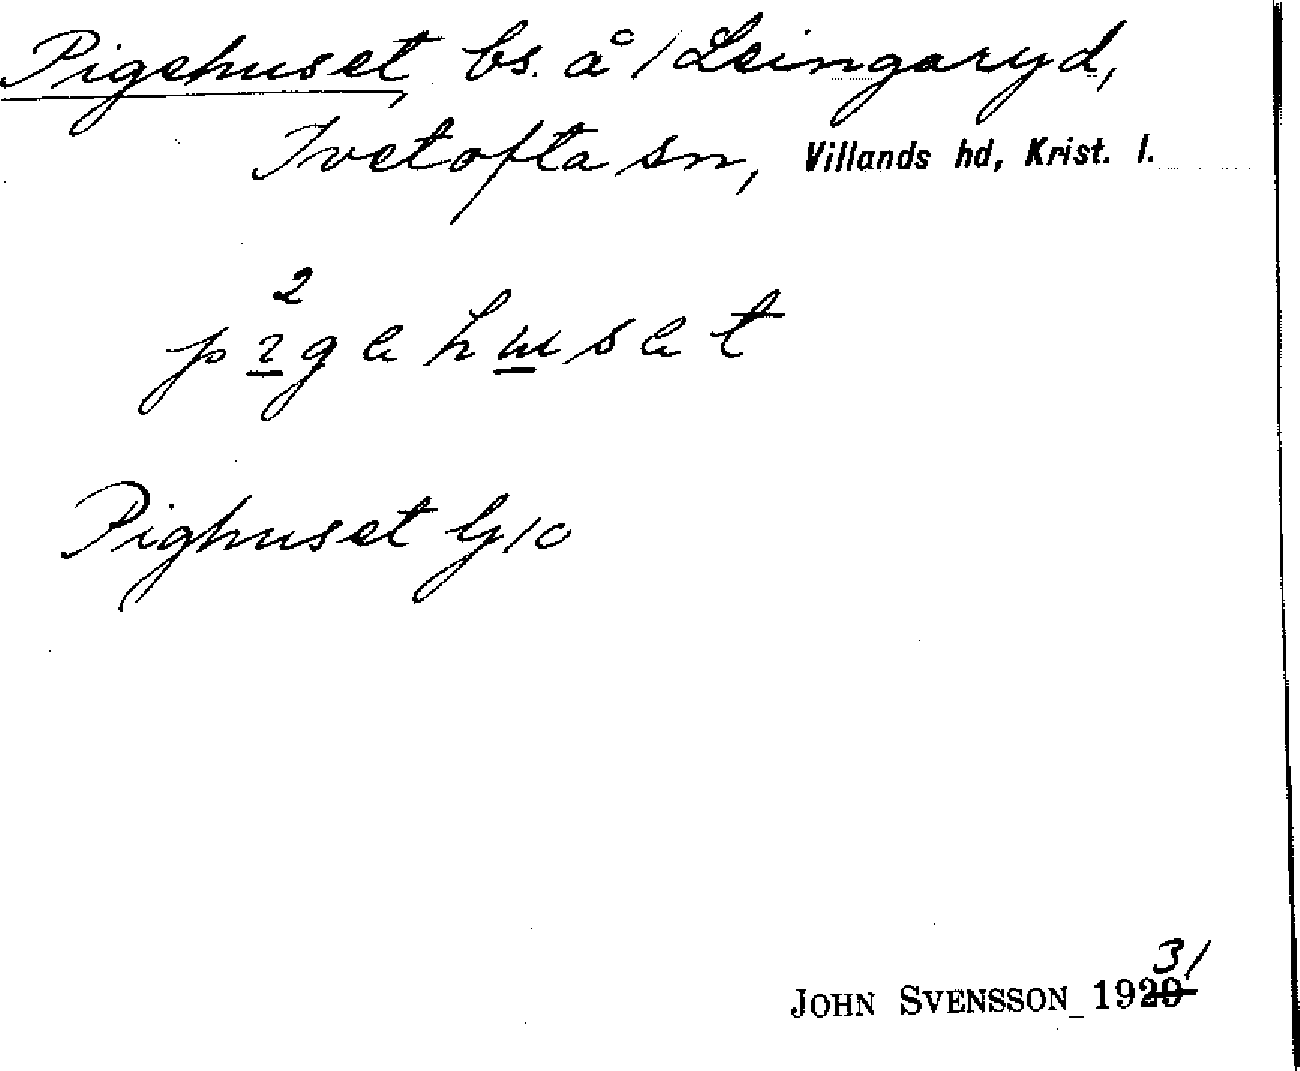 Pigehuset, bs. å / Leingaryd,
Ivetofta sn, Villands hd, Krist. l.
2
pigehuset
Pighuset G 10
31
JOHN SVENSSON 1920